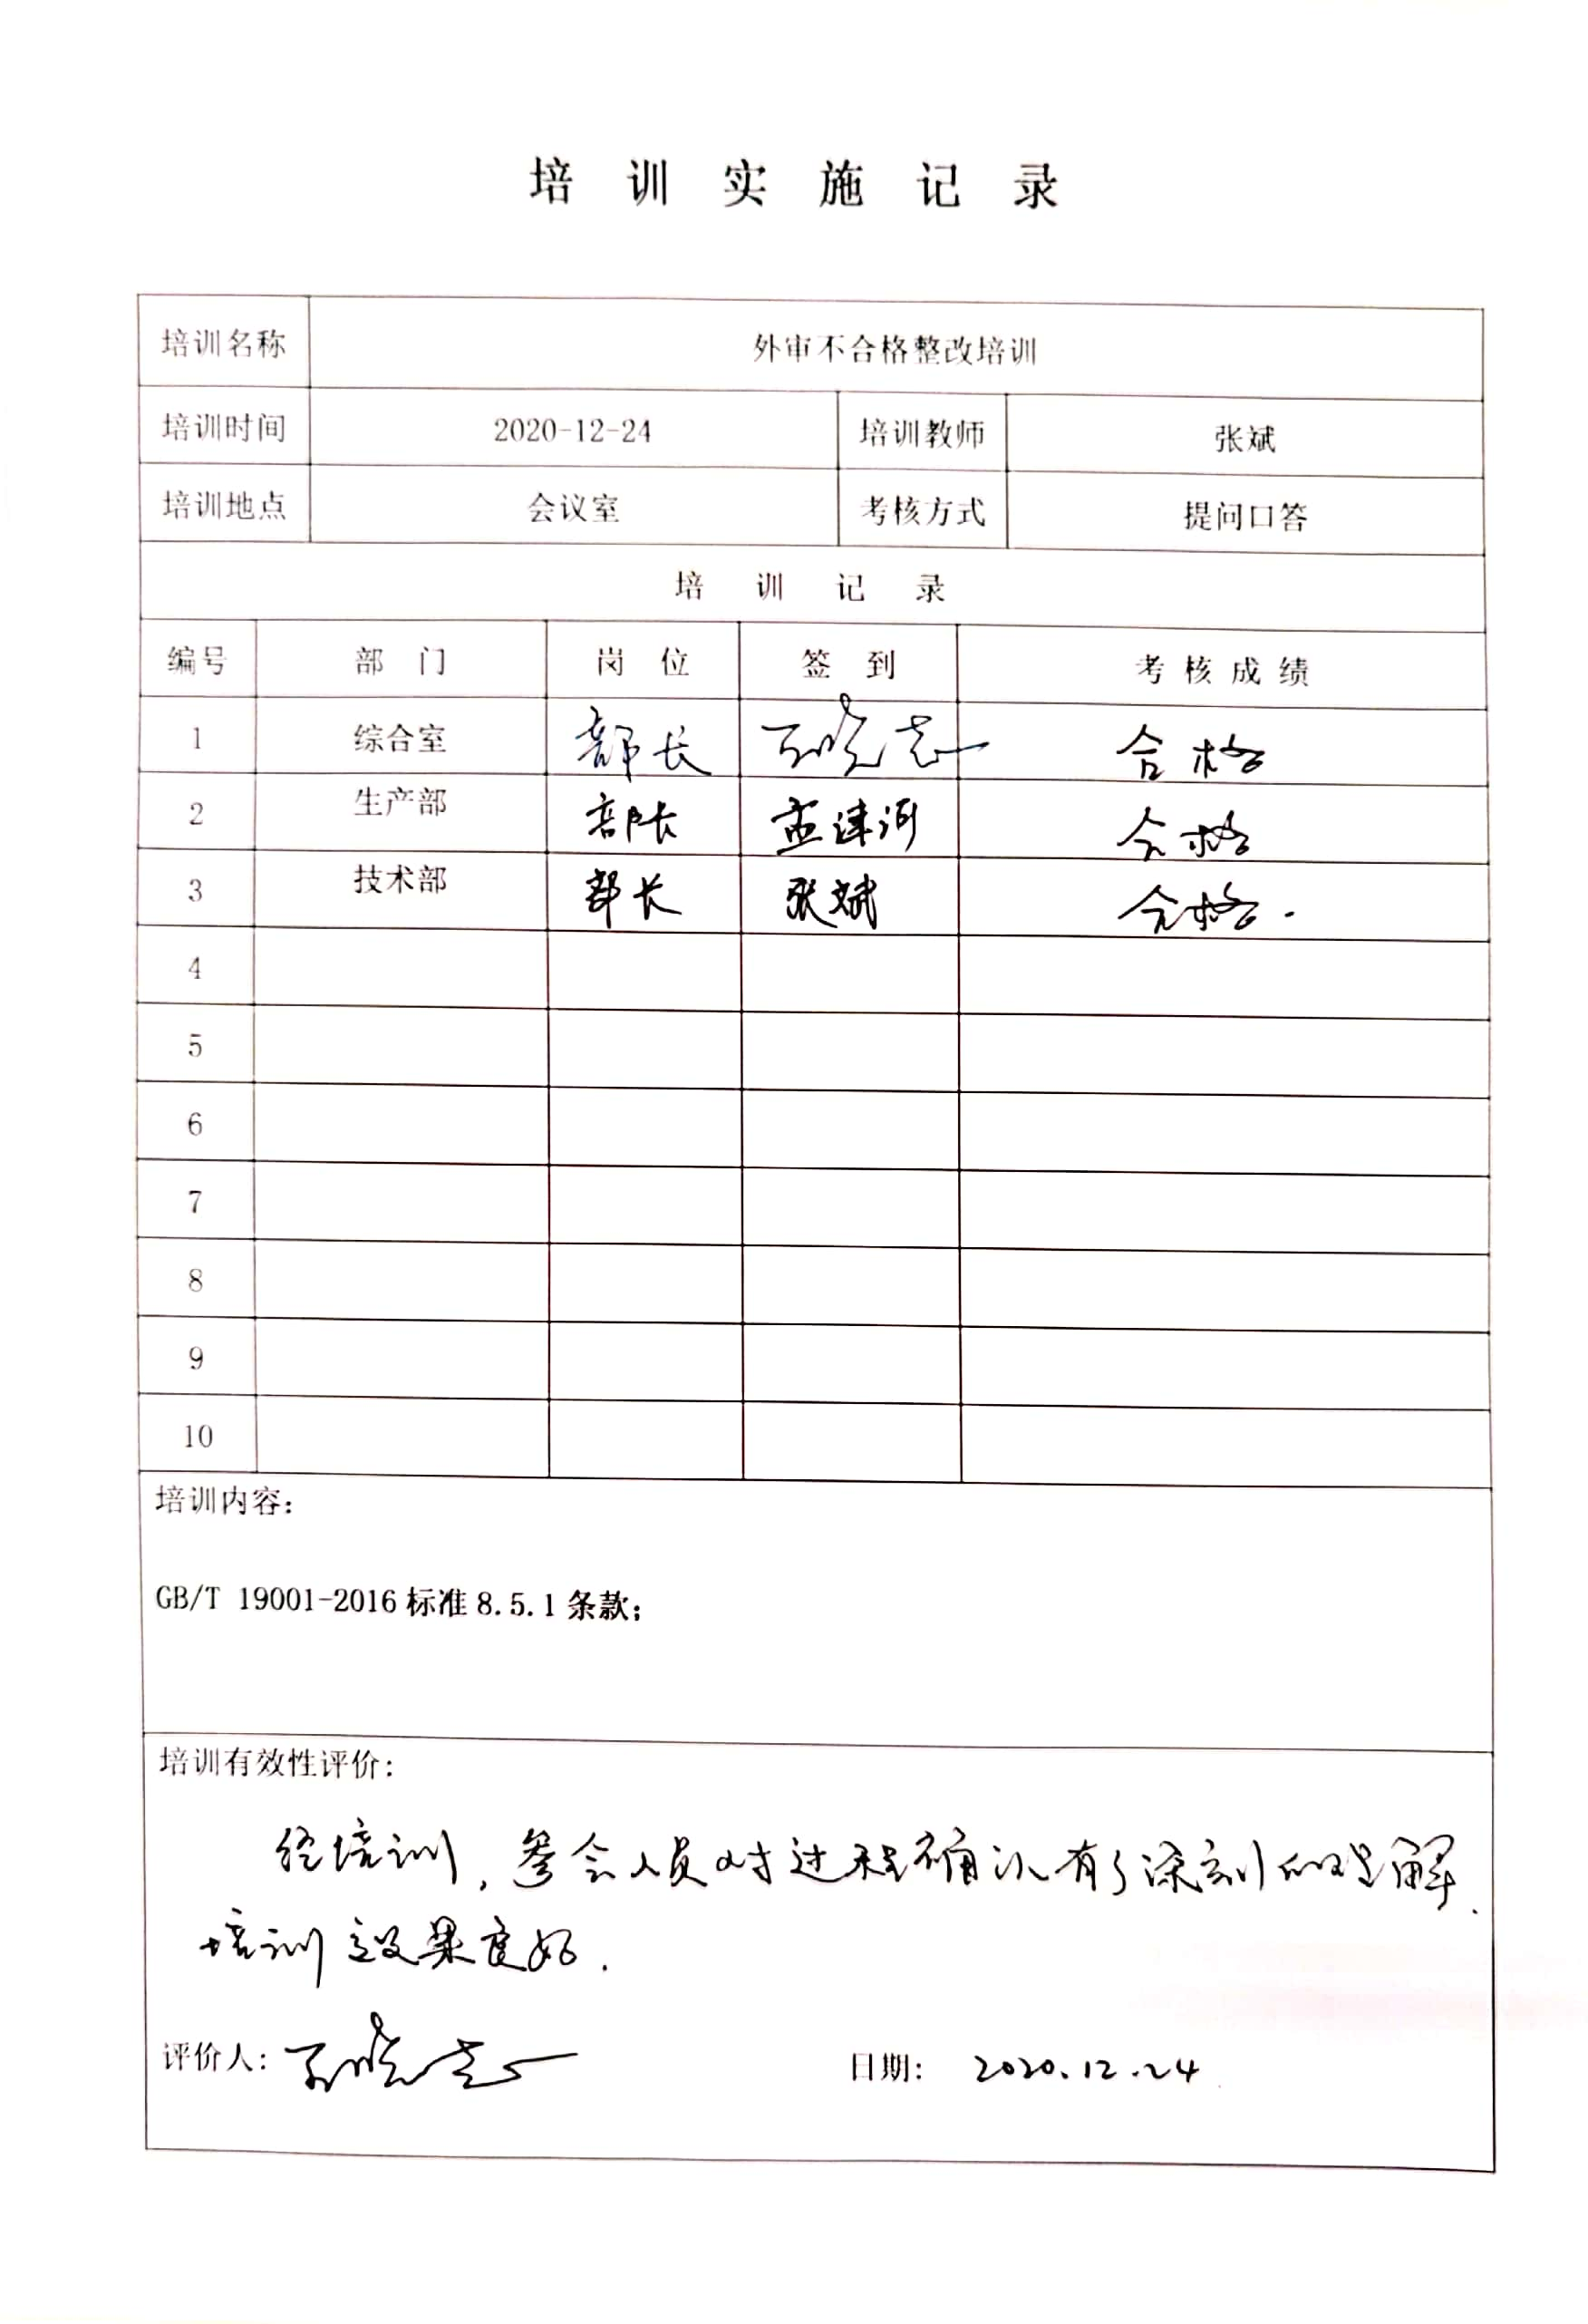 培训实施记录
培训名称 外审不合格整改培训
培训时间 2020-12-24 培训教师 张斌
培训地点 会议室 考核方式 提问口答
培训记录
编号 部门 岗位 签到 考核成绩
1 综合室 部长 晓志 合格
2 生产部 部长 孟津河 合格
3 技术部 部长 张斌 合格.
4
5
6
7
8
9
10
培训内容:
GB/T 19001-2016标准8.5.1条款;
培训有效性评价:
经培训, 参会人员对过程确认有了深刻的理解.
培训效果良好.
评价人: 晓志 日期: 2020.12.24